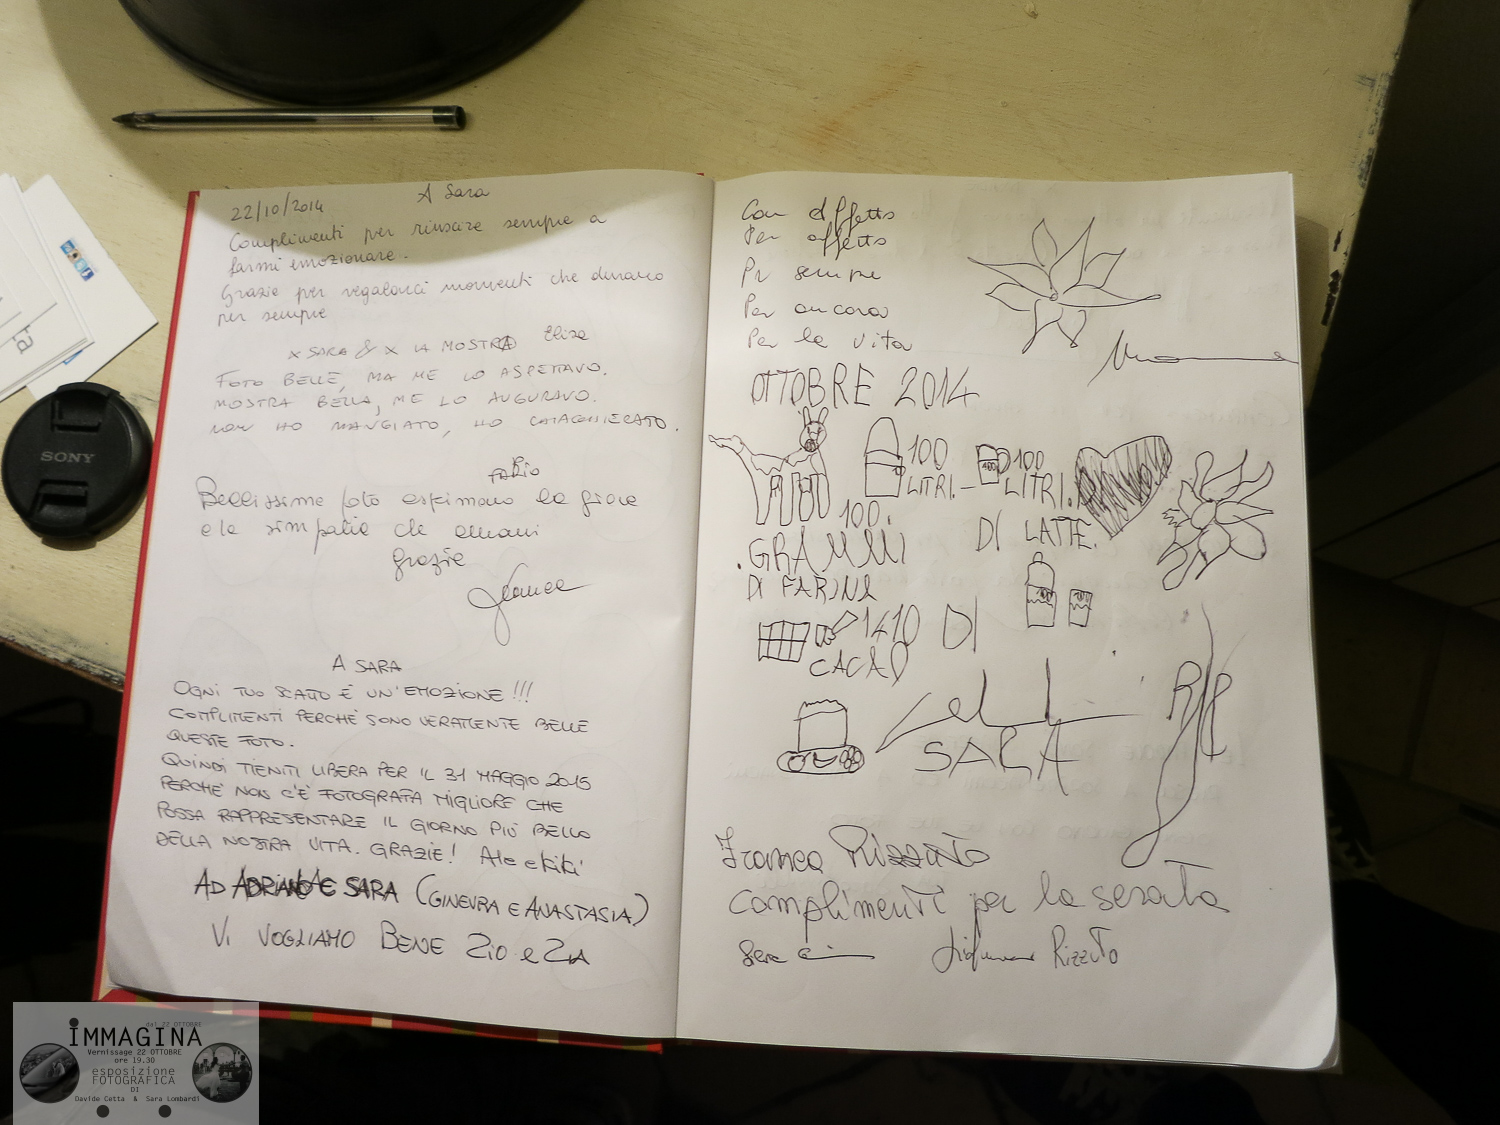 22/10/2014
A Sara
Complimenti per riuscire sempre a
farmi emozionare.
Grazie per regalarci momenti che durano
per sempre
Elisa
x SARA & x LA MOSTRA
FOTO BELLE, MA ME LO ASPETTAVO.
MOSTRA BELLA, ME LO AUGURAVO.
NON HO MANGIATO, HO CHIACCHIERATO.
FABIO
Bellissime foto esprimono la gioia
e la simpatia che emani
Grazie
A SARA
OGNI TUO SCATTO È UN'EMOZIONE!!!
COMPLIMENTI PERCHÈ SONO VERAMENTE BELLE
QUESTE FOTO.
QUINDI TIENITI LIBERA PER IL 31 MAGGIO 2015
PERCHÈ NON C'È FOTOGRAFA MIGLIORE CHE
POSSA RAPPRESENTARE IL GIORNO PIÙ BELLO
DELLA NOSTRA VITA. GRAZIE! Ale e Kiki
AD ADRIANO E SARA (GINEVRA E ANASTASIA)
VI VOGLIAMO BENE ZIO e ZIA
Con affetto
Per affetto
Per sempre
Per ancora
Per la vita
OTTOBRE 2014
100 LITRI.
100 LITRI.
DI LATTE.
100.
.GRAMMI
DI FARINA
1410 DI
CACAO
SARA
Franca Rizzuto
complimenti per la serata
Rizzuto
SONY
dal 22 OTTOBRE
IMMAGINA
Vernissage 22 OTTOBRE
ore 19.30
esposizione
FOTOGRAFICA
DI
Davide Cetta & Sara Lombardi